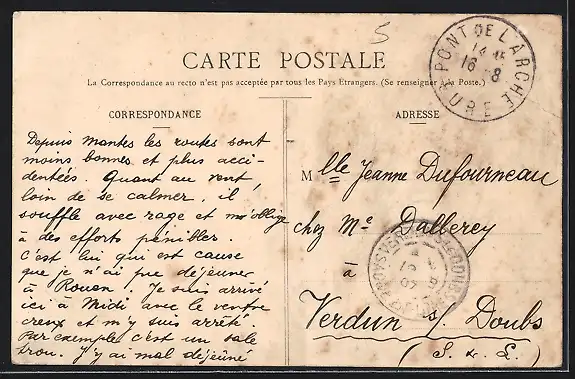 5
CARTE POSTALE
La Correspondance au recto n'est pas acceptée par tous les Pays Etrangers. (Se renseigner à la Poste.)
CORRESPONDANCE
Depuis Mantes les routes sont
moins bonnes et plus acci-
dentées. Quant au vent,
loin de se calmer, il
souffle avec rage et m'oblige
à des efforts pénibles.
C'est lui qui est cause
que je n'ai pu déjeuner
à Rouen. Je suis arrivé
ici à Midi avec le ventre
creux et m'y suis arrêté.
Par exemple c'est un sale
trou. J'y ai mal déjeuné
ADRESSE
Mlle Jeanne Dufourneau
chez Me Dallerey
à
Verdun s/ Doubs
(S. & L.)
PONT DE L'ARCHE
16 8
EURE